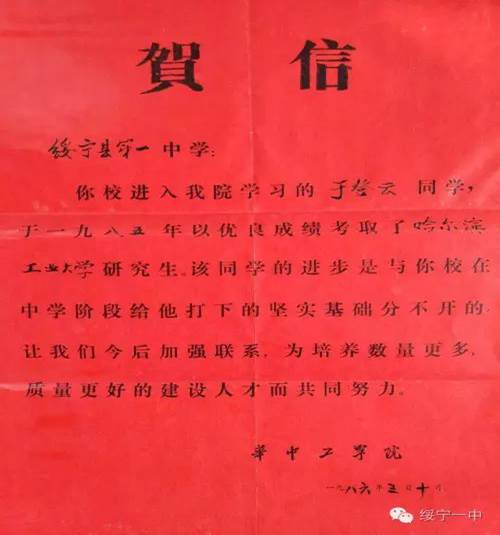 賀信
绥宁县第一中学:
你校进入我院学习的于登云同学,
于一九八五年以优良成绩考取了哈尔滨
工业大学研究生。该同学的进步是与你校在
中学阶段给他打下的坚实基础分不开的.
让我们今后加强联系,为培养数量更多,
质量更好的建设人才而共同努力。
华中工学院
一九八六年三月十日
绥宁一中